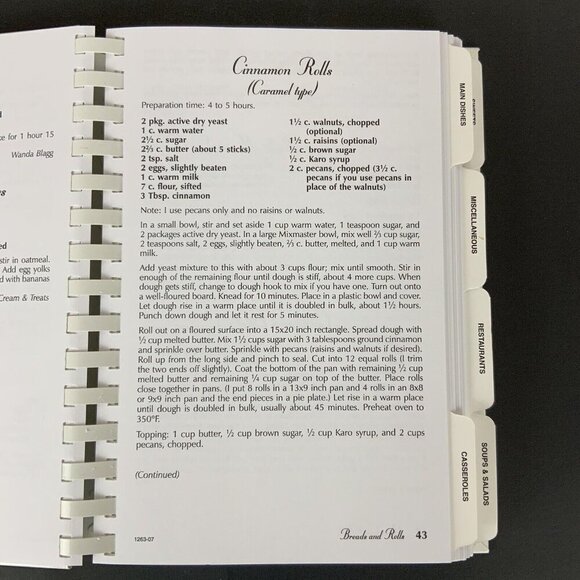 d
ke for 1 hour 15
Wanda Blagg
ws
ed
stir in oatmeal.
Add egg yolks
d with bananas
Cream & Treats
Cinnamon Rolls
(Caramel type)
Preparation time: 4 to 5 hours.
2 pkg. active dry yeast
1 c. warm water
2½ c. sugar
2⅔ c. butter (about 5 sticks)
2 tsp. salt
2 eggs, slightly beaten
1 c. warm milk
7 c. flour, sifted
3 Tbsp. cinnamon
1½ c. walnuts, chopped
(optional)
1½ c. raisins (optional)
½ c. brown sugar
½ c. Karo syrup
2 c. pecans, chopped (3½ c.
pecans if you use pecans in
place of the walnuts)
Note: I use pecans only and no raisins or walnuts.
In a small bowl, stir and set aside 1 cup warm water, 1 teaspoon sugar, and
2 packages active dry yeast. In a large Mixmaster bowl, mix well ⅔ cup sugar,
2 teaspoons salt, 2 eggs, slightly beaten, ⅔ c. butter, melted, and 1 cup warm
milk.
Add yeast mixture to this with about 3 cups flour; mix until smooth. Stir in
enough of the remaining flour until dough is stiff, about 4 more cups. When
dough gets stiff, change to dough hook to mix if you have one. Turn out onto
a well-floured board. Knead for 10 minutes. Place in a plastic bowl and cover.
Let dough rise in a warm place until it is doubled in bulk, about 1½ hours.
Punch down dough and let it rest for 5 minutes.
Roll out on a floured surface into a 15x20 inch rectangle. Spread dough with
½ cup melted butter. Mix 1½ cups sugar with 3 tablespoons ground cinnamon
and sprinkle over butter. Sprinkle with pecans (raisins and walnuts if desired).
Roll up from the long side and pinch to seal. Cut into 12 equal rolls (I trim
the two ends off slightly). Coat the bottom of the pan with remaining ½ cup
melted butter and remaining ¼ cup sugar on top of the butter. Place rolls
close together in pans. (I put 8 rolls in a 13x9 inch pan and 4 rolls in an 8x8
or 9x9 inch pan and the end pieces in a pie plate.) Let rise in a warm place
until dough is doubled in bulk, usually about 45 minutes. Preheat oven to
350°F.
Topping: 1 cup butter, ½ cup brown sugar, ½ cup Karo syrup, and 2 cups
pecans, chopped.
(Continued)
1263-07
Breads and Rolls 43
MAIN DISHES
MISCELLANEOUS
RESTAURANTS
SOUPS & SALADS
CASSEROLES